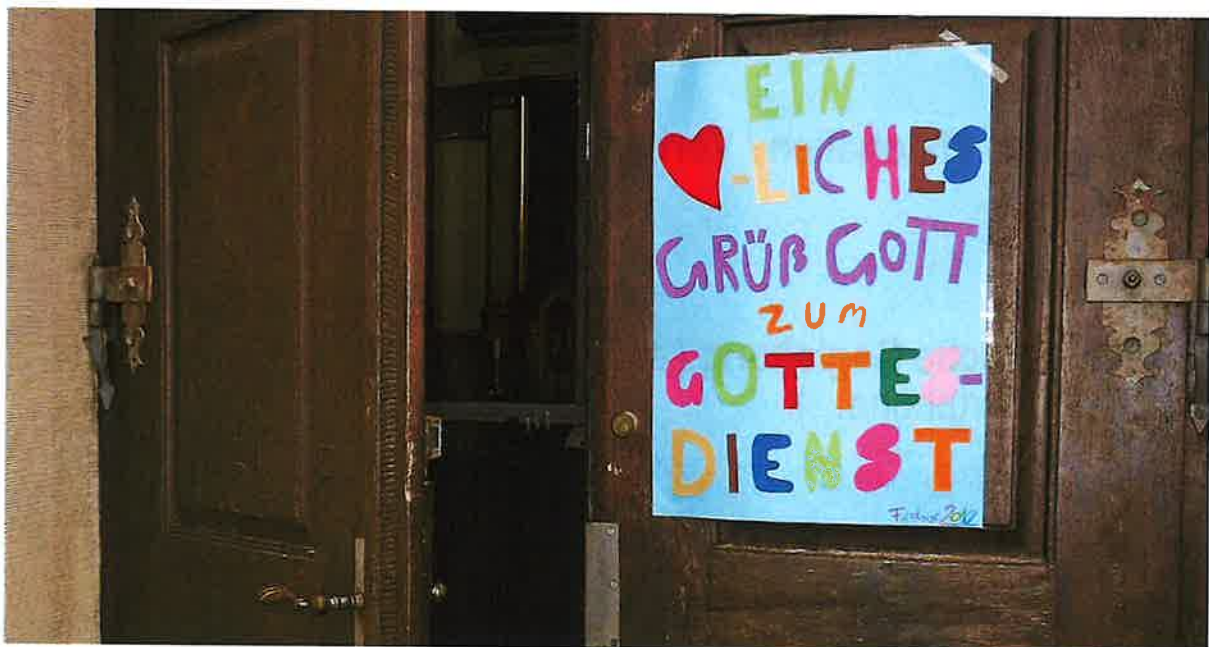 EIN
-LICHES
GRÜß GOTT
ZUM
GOTTES-
DIENST
2012